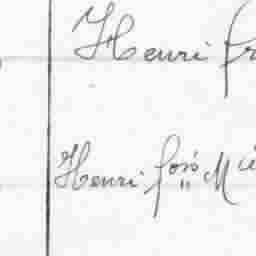 Henri fr
Henri fois Mie